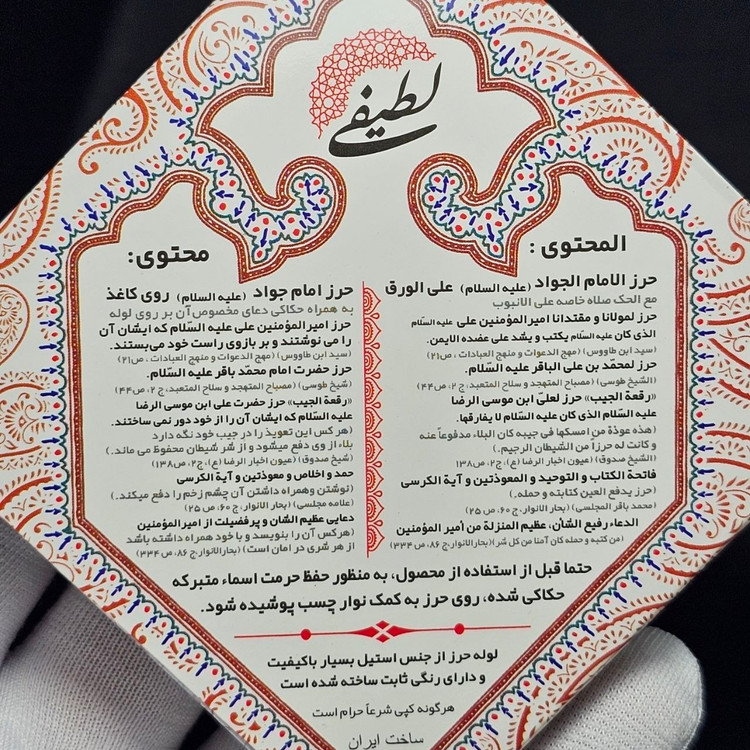 لطیفی
المحتوی :
حرز الامام الجواد (علیه السلام) علی الورق
مع الحک صلاه خاصه علی الانبوب
حرز لمولانا و مقتدانا امیرالمؤمنین علی علیه السلام
الذی کان علیه السلام یکتب و یشد علی عضده الایمن.
(سید ابن طاووس) (مهج الدعوات و منهج العبادات ، ص۲۱)
حرز لمحمّد بن علی الباقر علیه السّلام.
(الشیخ طوسی) (مصباح المتهجد و سلاح المتعبد، ج ۲، ص۴۴)
«رقعة الجیب» حرز لعلیّ ابن موسی الرضا
علیه السّلام الذی کان علیه السّلام لا یفارقها.
(هذه عوذة من امسکها فی جیبه کان البلاء مدفوعاً عنه
و کانت له حرزاً من الشیطان الرجیم.)
(الشیخ صدوق) (عیون اخبار الرضا (ع)، ج۲، ص۱۳۸
فاتحة الکتاب و التوحید و المعوذتین و آیة الکرسی
(حرز یدفع العین کتابته و حمله.)
(محمد باقر المجلسی) (بحار الانوار، ج ۶۰، ص ۲۵)
الدعاء رفیع الشأن، عظیم المنزلة من أمیر المؤمنین
(من کتبه و حمله کان آمنا من کل شر) (بحارالانوار، ج ۸۶، ص ۳۳۴)
محتوی:
حرز امام جواد (علیه السلام) روی کاغذ
به همراه حکاکی دعای مخصوص آن بر روی لوله
حرز امیرالمؤمنین علی علیه السّلام که ایشان آن
را می نوشتند و بر بازوی راست خود می‌بستند.
(سید ابن طاووس) (مهج الدعوات و منهج العبادات ، ص۲۱)
حرز حضرت امام محمّد باقر علیه السّلام.
(شیخ طوسی) (مصباح المتهجد و سلاح المتعبد، ج ۲، ص۴۴)
«رقعة الجیب» حرز حضرت علی ابن موسی الرضا
علیه السّلام که ایشان آن را از خود دور نمی ساختند.
(هر کس این تعویذ را در جیب خود نگه دارد
بلاء از وی دفع میشود و از شر شیطان محفوظ می ماند.)
(شیخ صدوق) (عیون اخبار الرضا (ع)، ج۲، ص۱۳۸)
حمد و اخلاص و معوذتین و آیة الکرسی
(نوشتن و همراه داشتن آن چشم زخم را دفع میکند.)
(علامه مجلسی) (بحار الانوار، ج ۶۰، ص ۲۵)
دعایی عظیم الشان و پرفضیلت از امیرالمؤمنین
(هرکس آن را بنویسد و با خود همراه داشته باشد
از هر شری در امان است) (بحارالانوار، ج ۸۶، ص ۳۳۴)
حتما قبل از استفاده از محصول، به منظور حفظ حرمت اسماء متبرکه
حکاکی شده، روی حرز به کمک نوار چسب پوشیده شود.
لوله حرز از جنس استیل بسیار باکیفیت
و دارای رنگی ثابت ساخته شده است
هرگونه کپی شرعاً حرام است
ساخت ایران